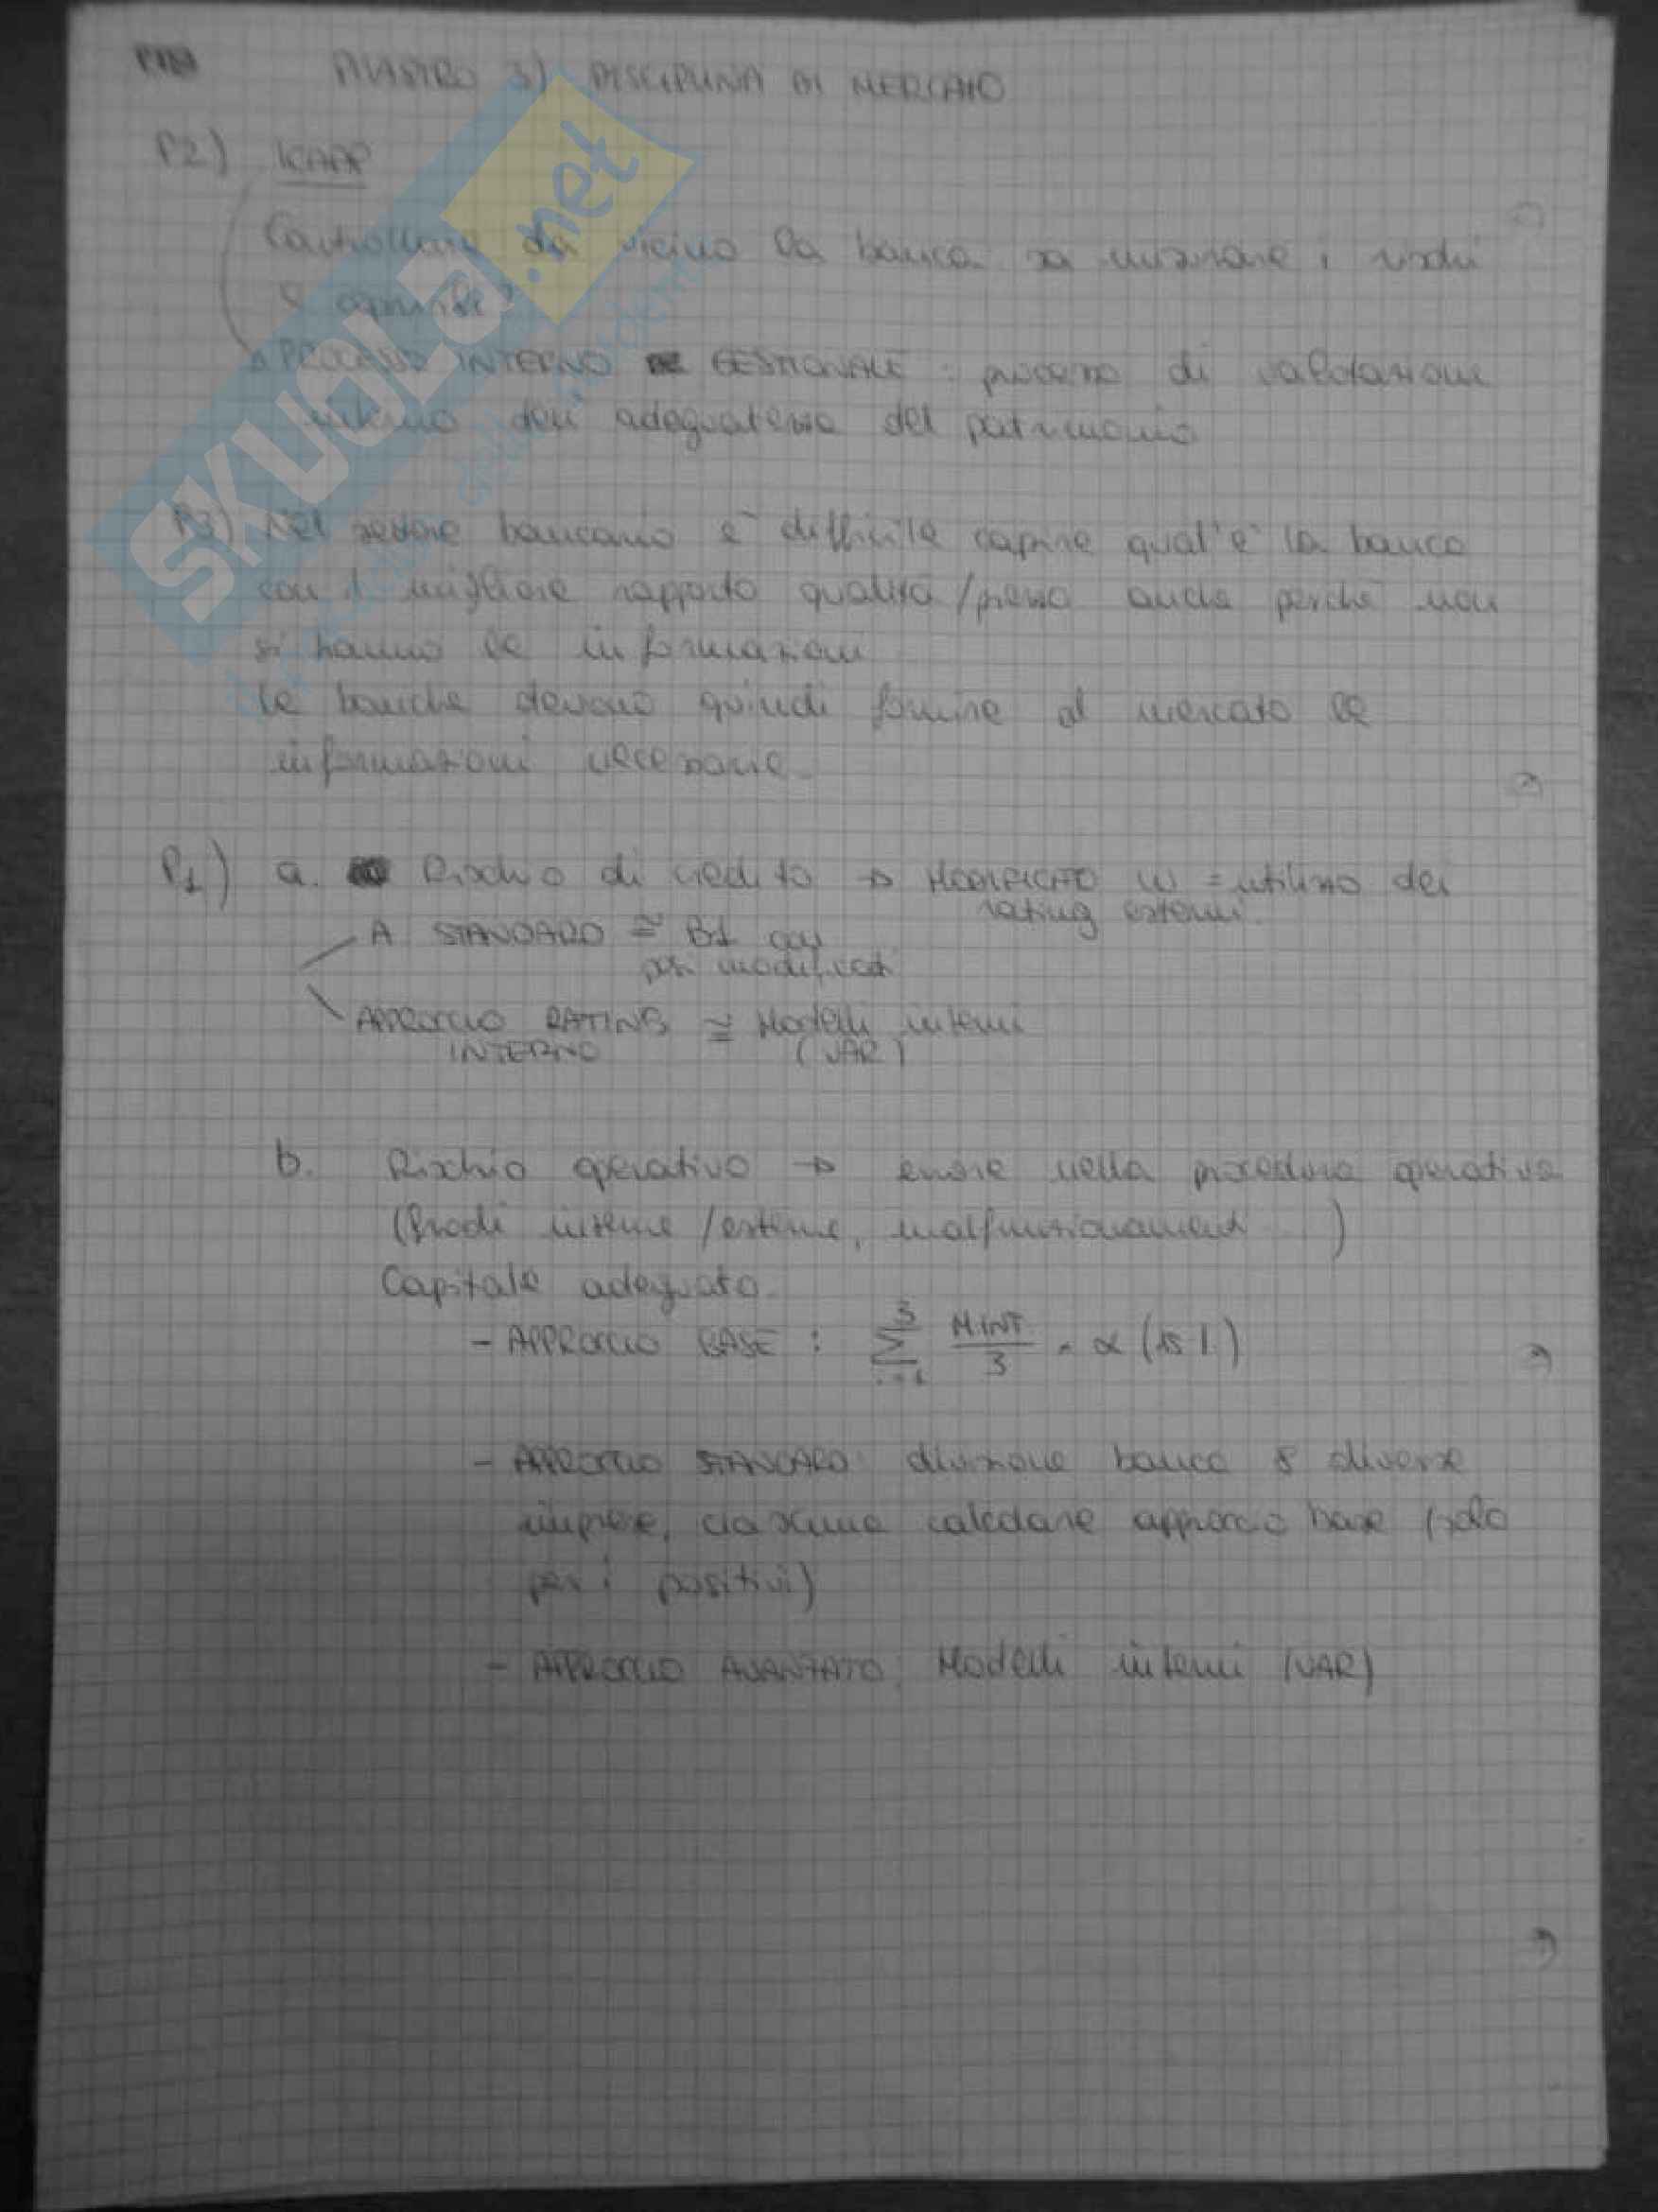 PILASTRO 3) DISCIPLINA DI MERCATO
P2) ICAAP
Controllare da vicino la banca sa misurare i rischi
PROCESSO INTERNO GESTIONALE : processo di valutazione
interno dell'adeguatezza del patrimonio
P3) Nel settore bancario è difficile capire qual'è la banca
con il migliore rapporto qualità/prezzo anche perché non
si hanno le informazioni
Le banche devono quindi fornire al mercato le
informazioni necessarie.
P1) a. Rischio di credito → MODIFICATO W = utilizzo dei
rating esterni.
A STANDARD ≅ B1 con
pesi modificati
APPROCCIO RATING ≅ Modelli interni
INTERNO (VAR)
b. Rischio operativo → errore nella procedura operativa
(frodi interne/esterne, malfunzionamenti )
Capitale adeguato.
- APPROCCIO BASE : Σ 3 i=1 M.INT/3 · α (15%)
- APPROCCIO STANDARD: divisione banca 8 diverse
imprese, ciascuna calcolare approccio base (solo
per i positivi)
- APPROCCIO AVANZATO: Modelli interni (VAR)
SKUOLA.net